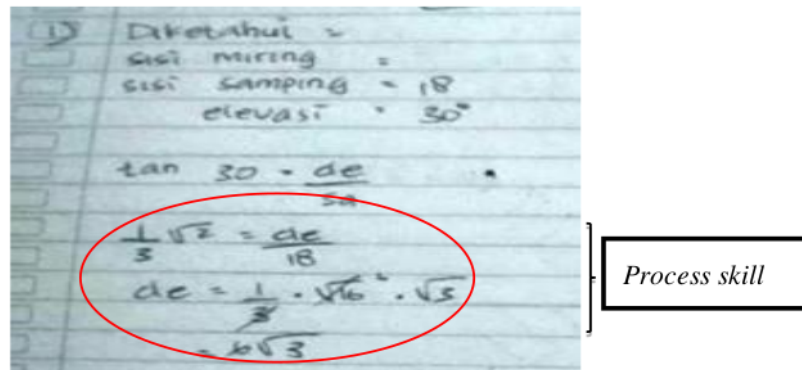 1) Diketahui =
sisi miring =
sisi samping = 18
elevasi = 30°
tan 30 = de/sa
1/3 √2 = de/18
de = 1/3 · · √3
= 6√3
Process skill